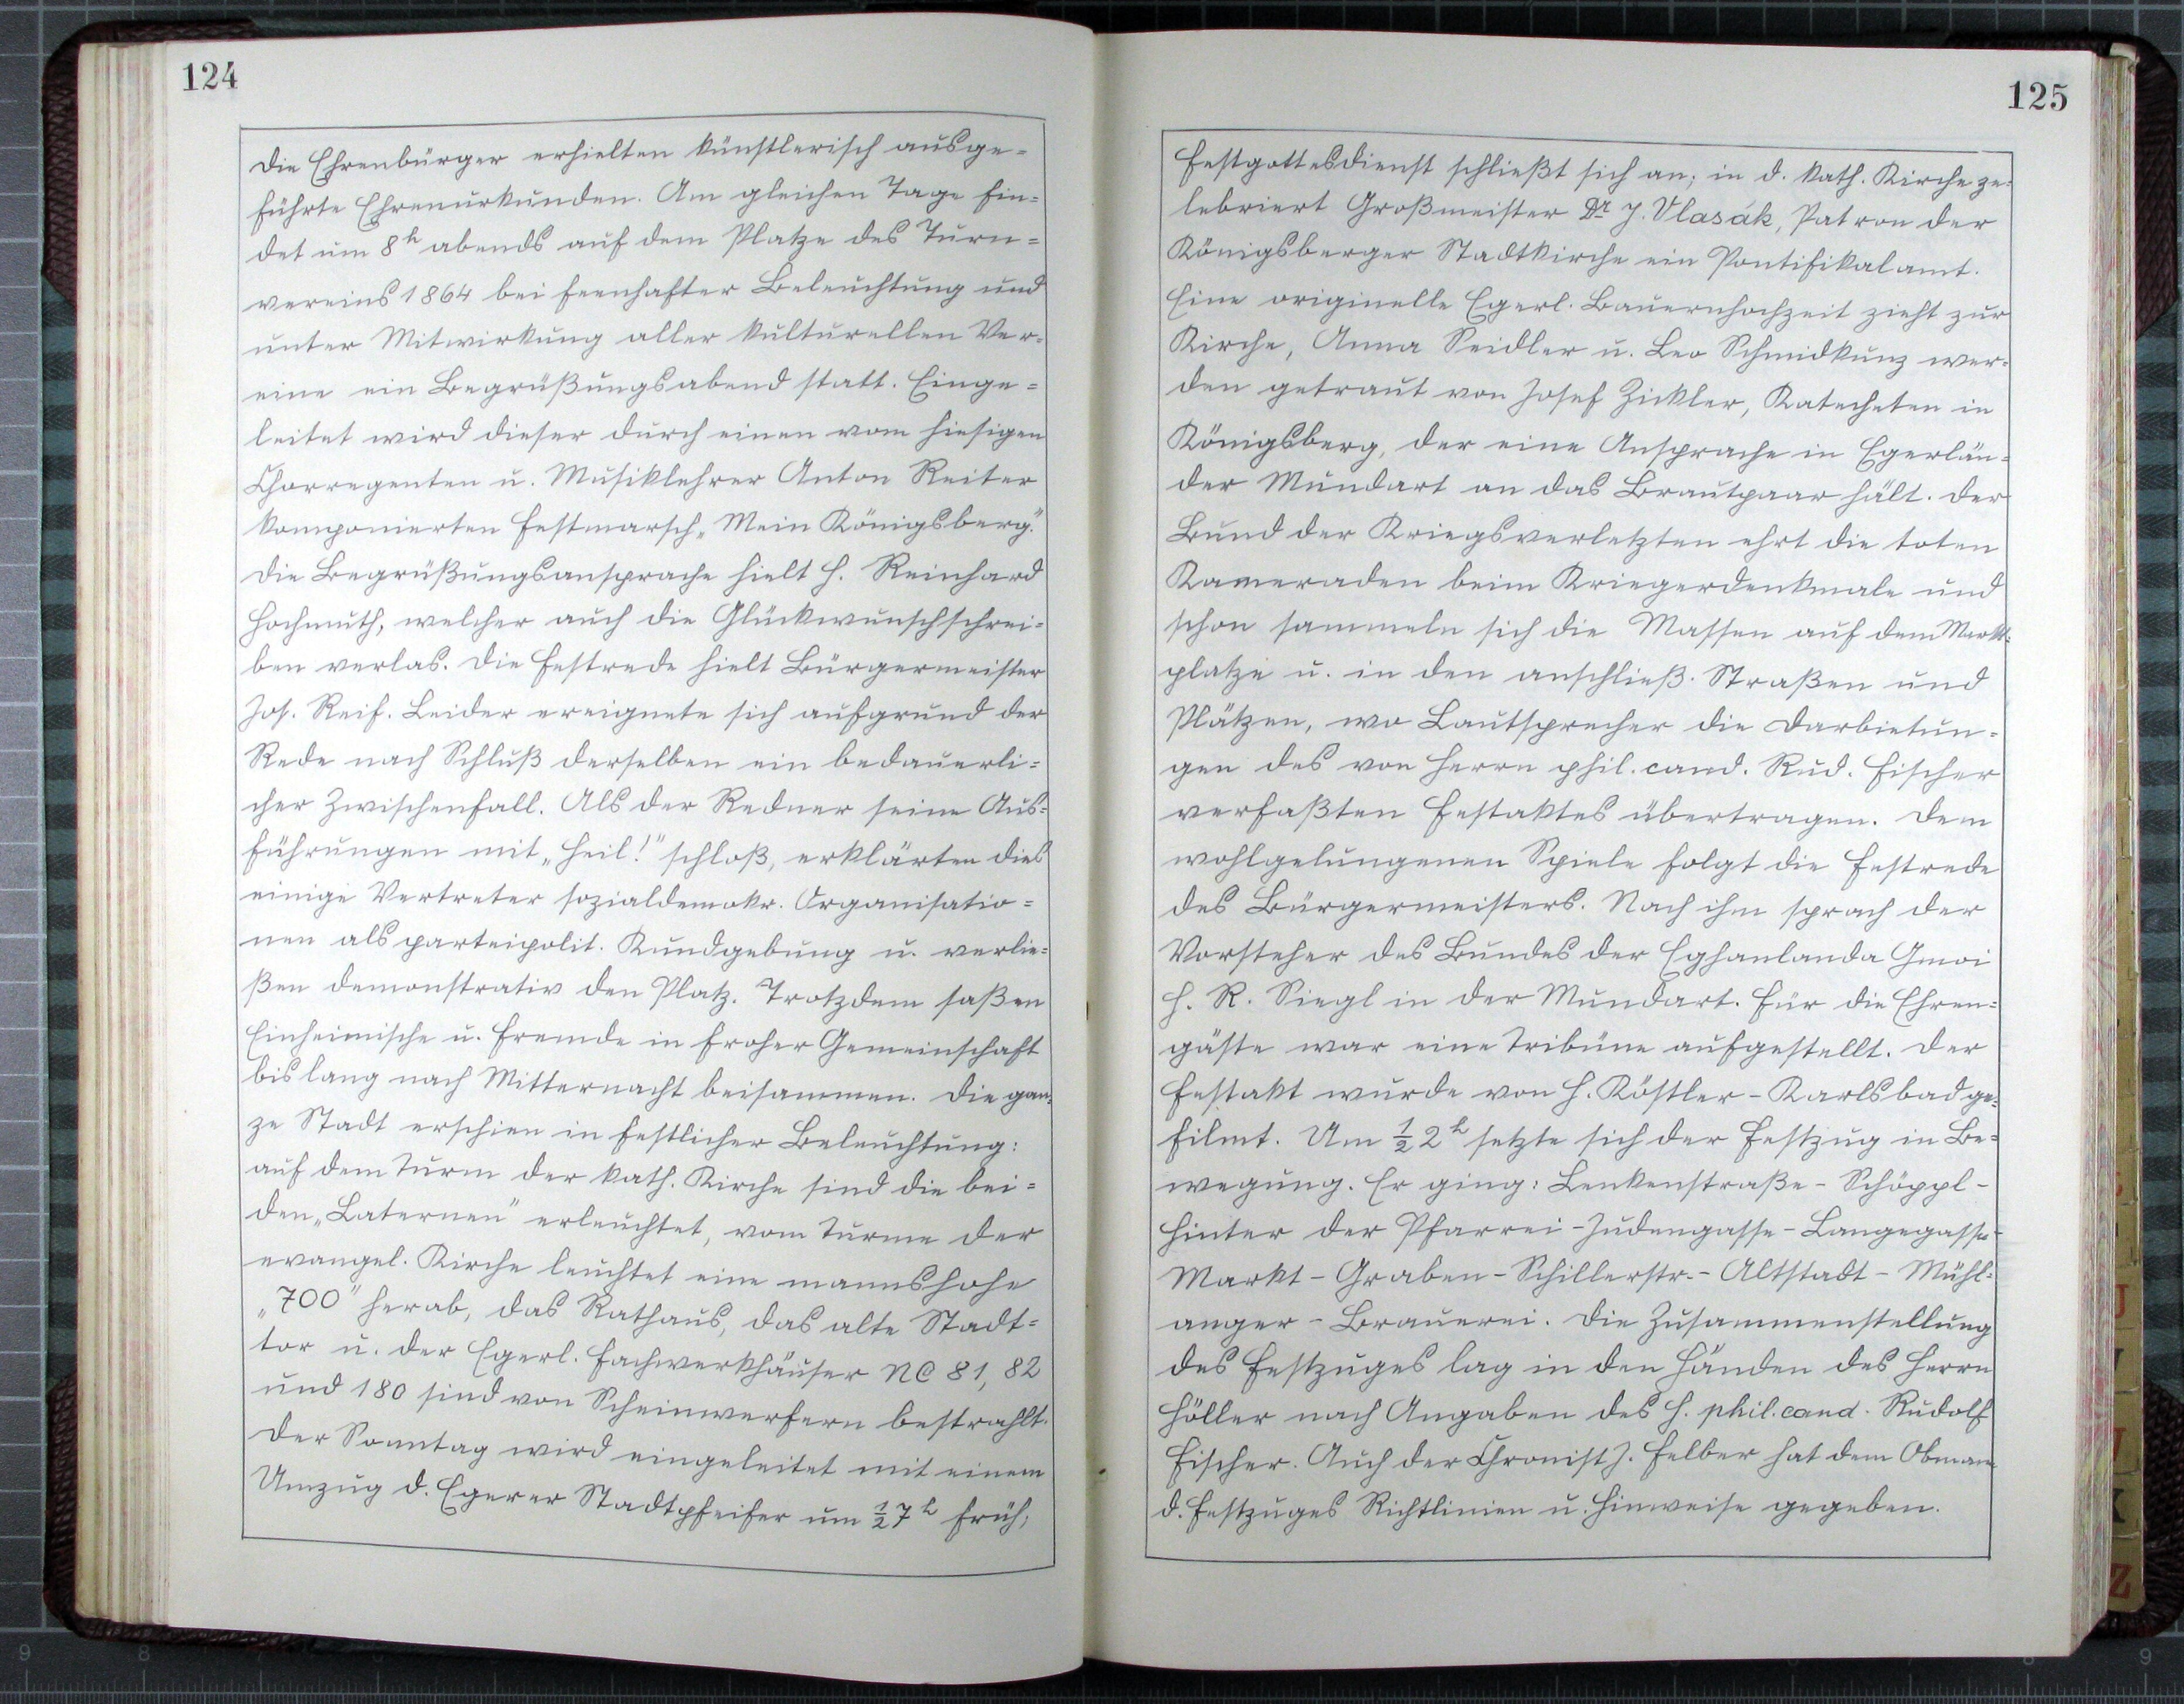 124
Die Ehrenbürger erhielten künstlerisch ausge=
führte Ehrenurkunden. Am gleichen Tage fin=
det um 8h abends auf dem Platze des Turn=
vereins 1864 bei feenhafter Beleuchtung und
unter Mitwirkung aller kulturellen Ver=
eine ein Begrüßungsabend statt. Einge=
leitet wird dieser durch einen vom hiesigen
Chorregenten u. Musiklehrer Anton Reiter
komponierten Festmarsch „Mein Königsberg."
Die Begrüßungsansprache hielt H. Reinhard
Hochmuth, welcher auch die Glückwunschschrei=
ben verlas. Die Festrede hielt Bürgermeister
Jos. Reif. Leider ereignete sich aufgrund der
Rede nach Schluß derselben ein bedauerli=
cher Zwischenfall. Als der Redner seine Aus=
führungen mit „Heil!" schloß, erklärten dies
einige Vertreter sozialdemokr. Organisatio=
nen als parteipolit. Kundgebung u. verlie=
ßen demonstrativ den Platz. Trotzdem saßen
Einheimische u. Fremde in froher Gemeinschaft
bis lang nach Mitternacht beisammen. Die gan=
ze Stadt erschien in festlicher Beleuchtung:
auf dem Turm der kath. Kirche sind die bei=
den „Laternen" erleuchtet, vom Turme der
evangel. Kirche leuchtet eine mannshohe
„700" herab, das Rathaus, das alte Stadt=
tor u. der Egerl. Fachwerkhäuser NC 81, 82
und 180 sind von Scheinwerfern bestrahlt.
Der Sonntag wird eingeleitet mit einem
Umzug d. Egerer Stadtpfeifer um ½7h früh;
125
Festgottesdienst schließt sich an; in d. kath. Kirche ze=
lebriert Großmeister Dr J. Vlasák, Patron der
Königsberger Stadtkirche ein Pontifikalamt.
Eine originelle Egerl. Bauernhochzeit zieht zur
Kirche, Anna Seidler u. Leo Schmidkunz wer=
den getraut von Josef Zickler, Katecheten in
Königsberg, der eine Ansprache in Egerlän=
der Mundart an das Brautpaar hält. Der
Bund der Kriegsverletzten ehrt die toten
Kameraden beim Kriegerdenkmale und
schon sammeln sich die Massen auf dem Markt=
platze u. in den anschließ. Straßen und
Plätzen, wo Lautsprecher die Darbietun=
gen des von Herrn phil. cand. Rud. Fischer
verfaßten Festaktes übertragen. Dem
wohlgelungenen Spiele folgt die Festrede
des Bürgermeisters. Nach ihm sprach der
Vorsteher des Bundes der Eghanlanda Gmoi
H. R. Siegl in der Mundart. Für die Ehren=
gäste war eine Tribüne aufgestellt. Der
Festakt wurde von H. Köstler-Karlsbad ge=
filmt. Um ½ 2h setzte sich der Festzug in Be=
wegung. Er ging: Lenkenstraße - Schöppl -
Hinter der Pfarrei - Judengasse - Langegasse -
Markt - Graben - Schillerstr. - Altstadt - Mühl=
anger - Brauerei. Die Zusammenstellung
des Festzuges lag in den Händen des Herrn
Höller nach Angaben des H. phil. cand. Rudolf
Fischer. Auch der Chronist J. Felber hat dem Obmann
d. Festzuges Richtlinien u. Hinweise gegeben.